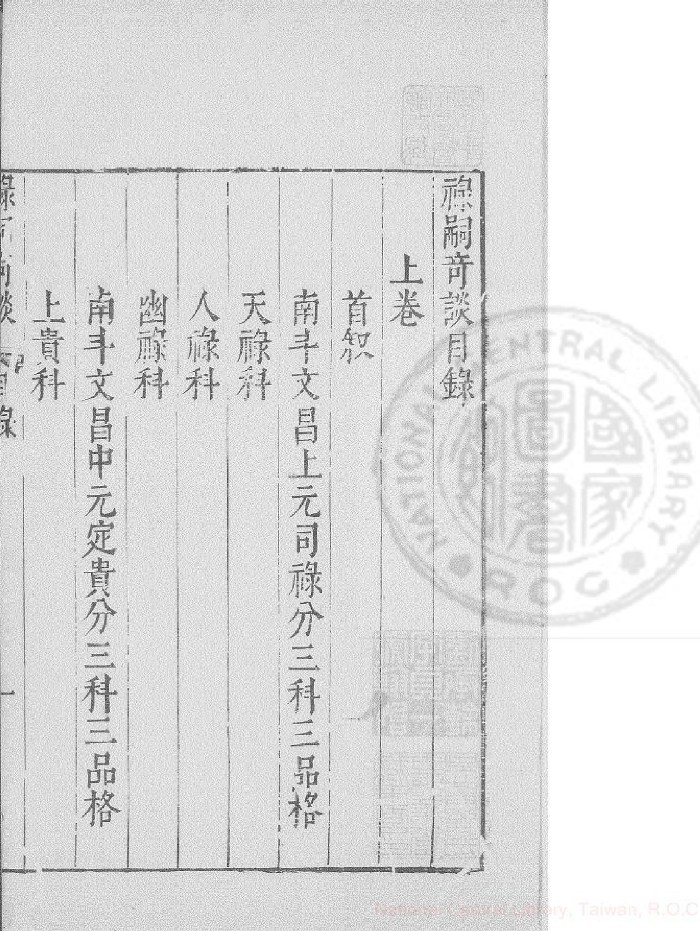 祿嗣奇談目錄
上卷
首叙
南斗文昌上元司祿分三科三品格
天祿科
人祿科
幽祿科
南斗文昌中元定貴分三科三品格
上貴科
祿嗣奇談 目錄 一
國家圖書館
NATIONAL CENTRAL LIBRARY
R.O.C
National Central Library, Taiwan, R.O.C